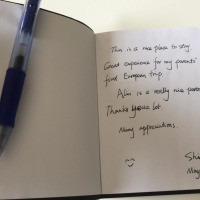 This is a nice place to stay.
Great experience for my parents'
first European trip.
Alin is a really nice person
Thanks a lot
Many appreciations.
Shi
May